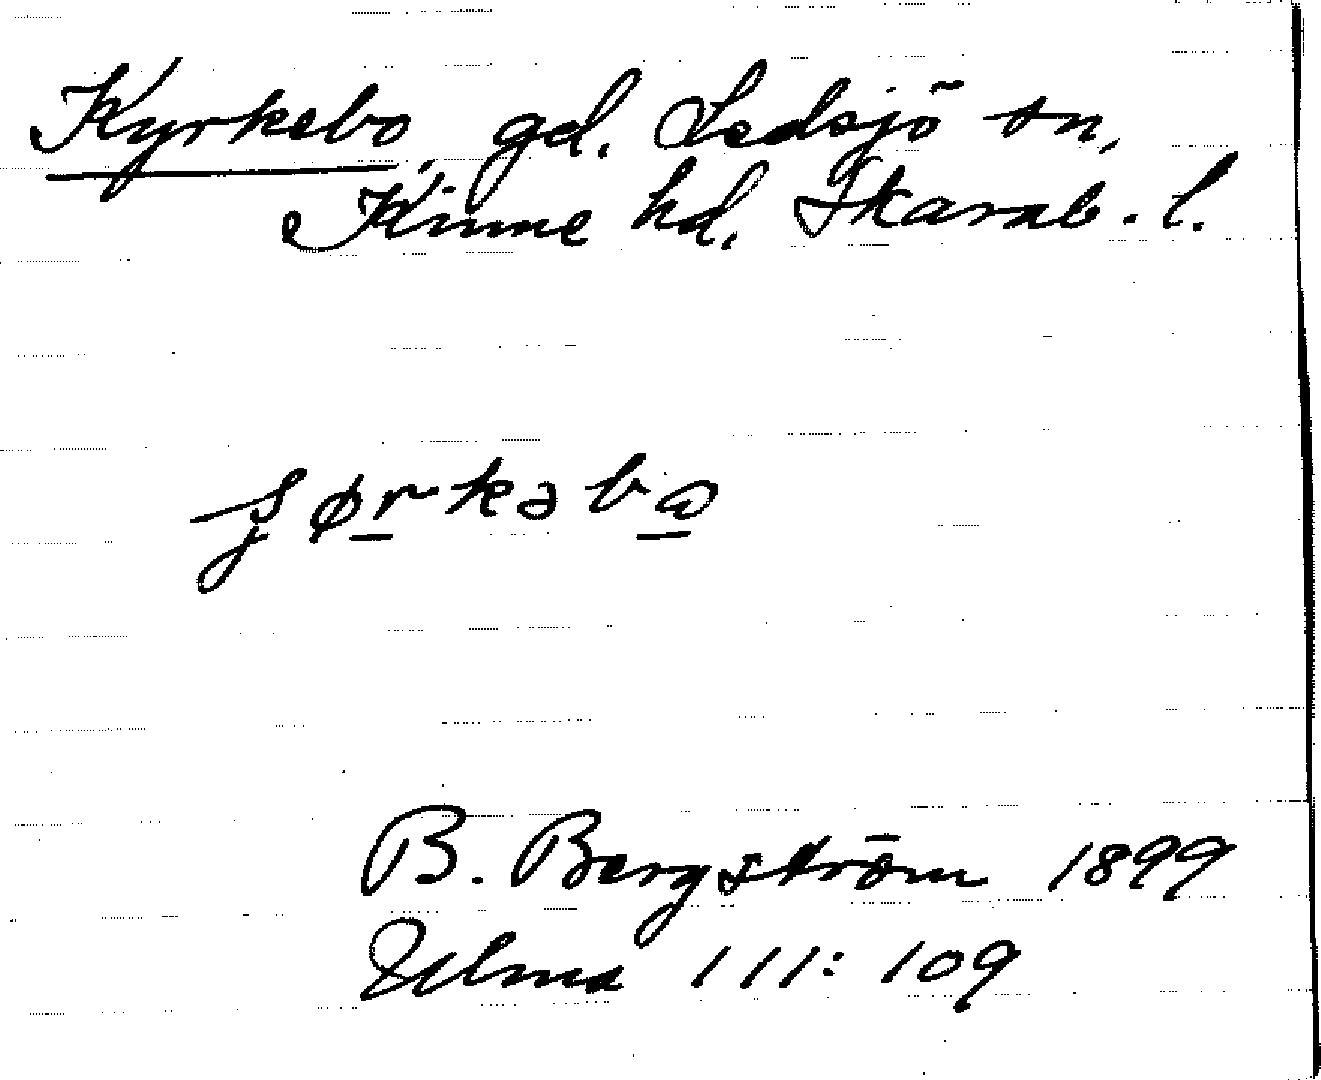 Kyrkebo, gd. Ledsjö sn,
Kinne hd. Skarab. l.
B. Bergström 1899
Ulma 111: 109